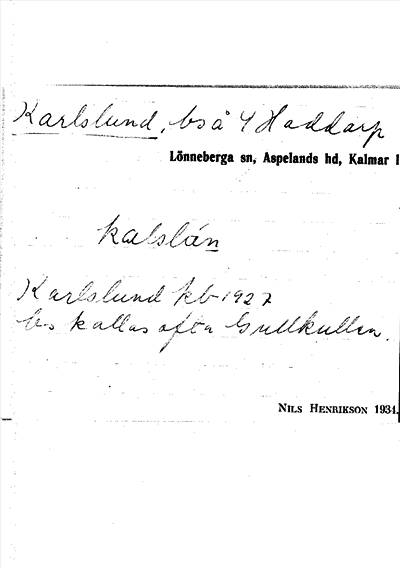 Karlslund, bs å 4 Haddarp
Lönneberga sn, Aspelands hd, Kalmar l
kalslán
Karlslund kb 1927
bs kallas ofta Gullkullen.
NILS HENRIKSON 1934.